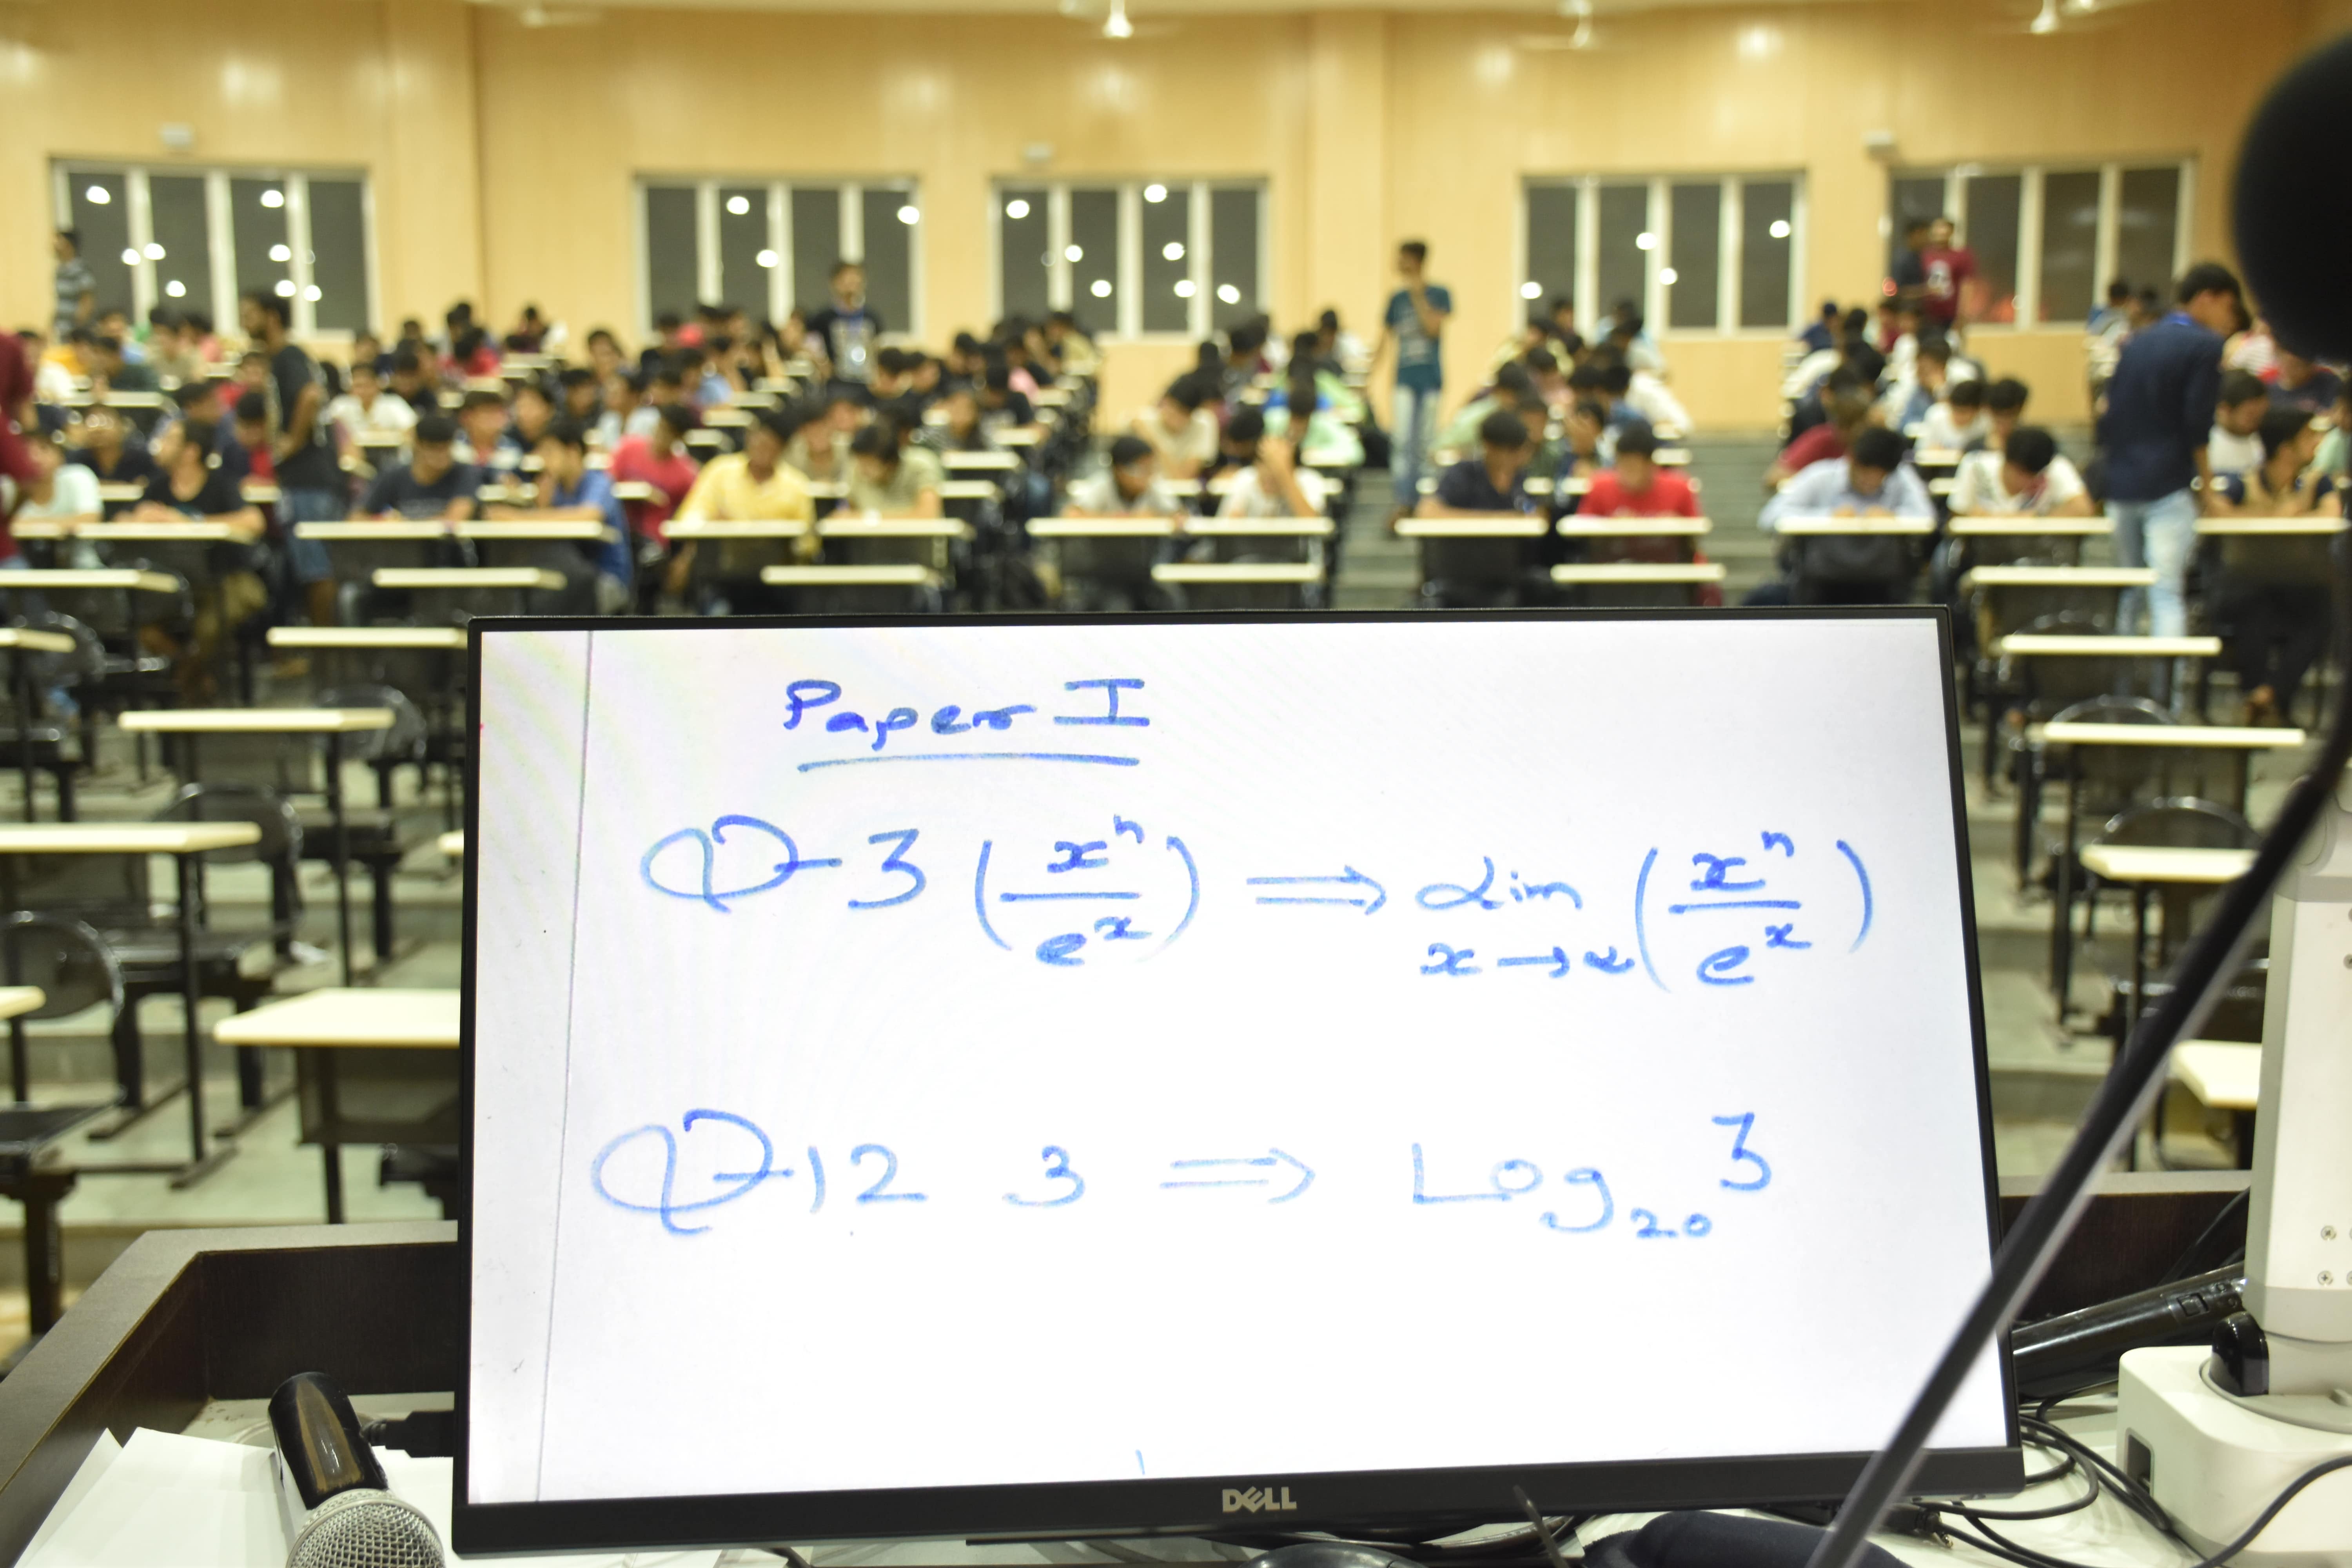 Paper I
Q-3 (x^n / e^x) ⟹ Lim x→∝ (x^n / e^x)
Q-12 3 ⟹ Log_20 3
DELL